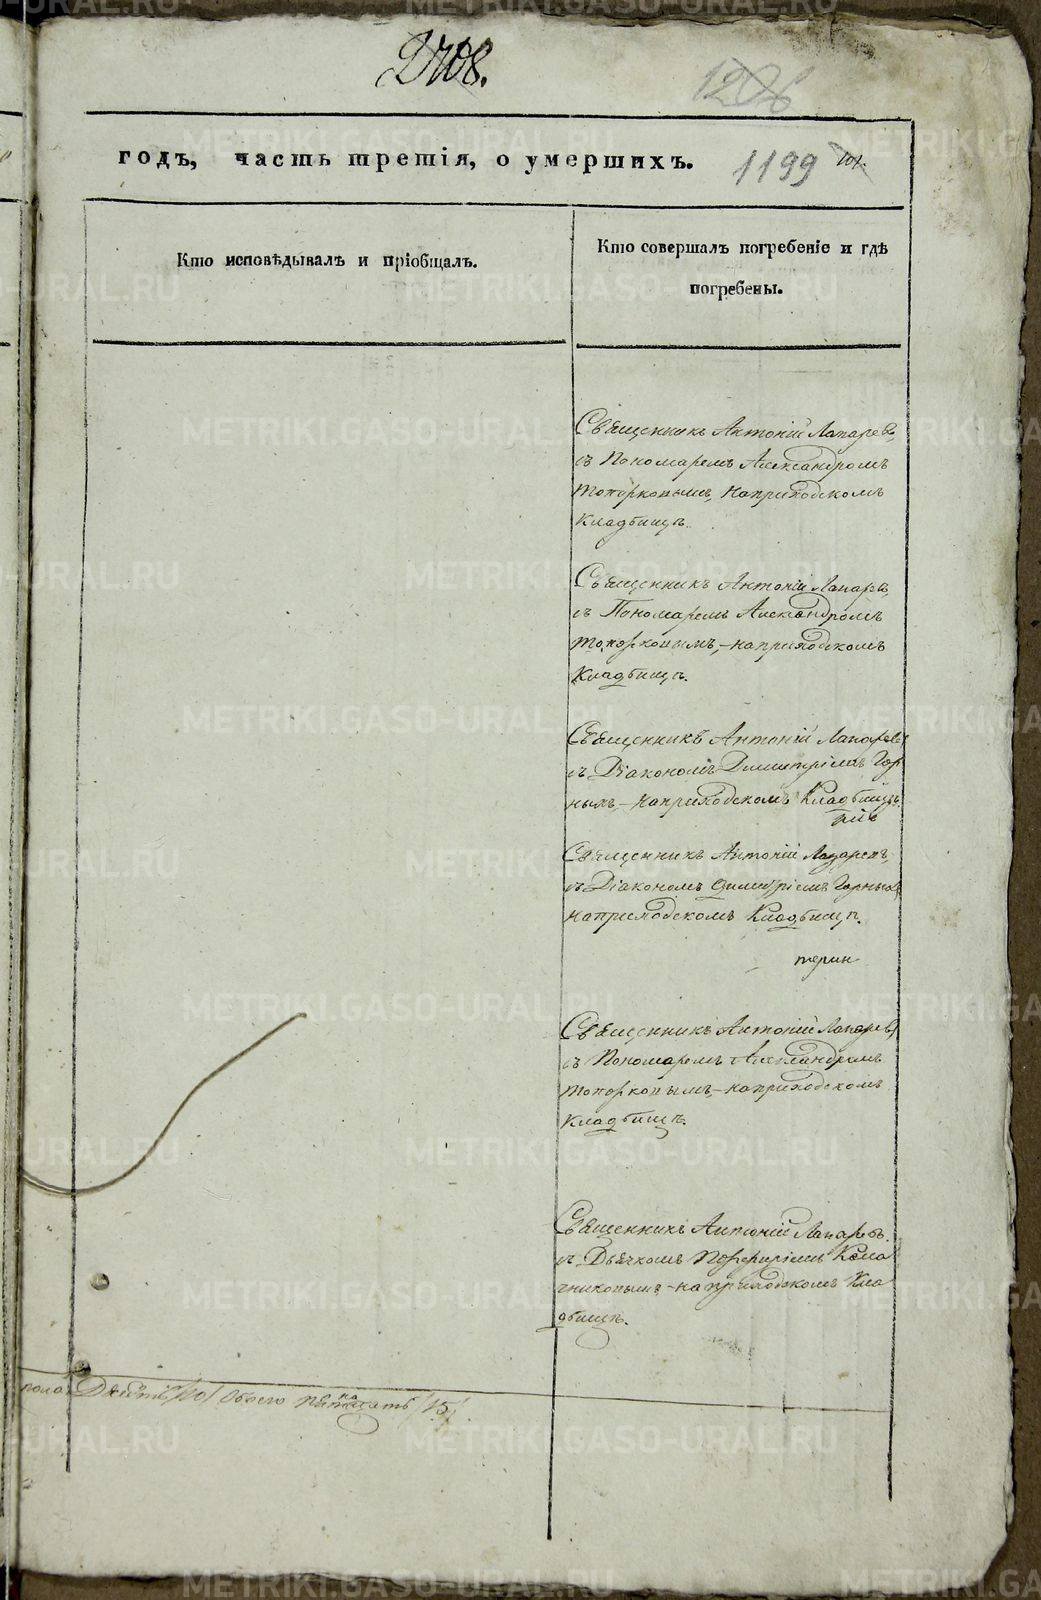 1208.
1206
годъ, часть третія, о умершихъ. 1199
Кто исповѣдывалъ и пріобщалъ.
Кто совершалъ погребеніе и гдѣ
погребены.
Священникъ Антоній Лапаревъ,
съ Пономаремъ Александромъ
Топорковымъ, на приходскомъ
кладбищѣ.
Священникъ Антоній Лапаревъ,
съ Пономаремъ Александромъ
Топорковымъ, – на приходскомъ
Кладбищѣ.
Священникъ Антоній Лапаревъ,
съ Діакономъ Димитріемъ Гор
нымъ, – на приходскомъ Кладбищѣ.
Священникъ Антоній Лапаревъ,
съ Діакономъ Димитріемъ Горнымъ
на приходскомъ Кладбищѣ.
терин
Священникъ Антоній Лапаревъ,
съ Пономаремъ Александромъ
Топорковымъ, – на приходскомъ
Кладбищѣ.
Священникъ Антоній Лапаревъ.
съ Дьячкомъ Порфиріемъ
– на приходскомъ Кла
дбищѣ.
пола Десять /10/ Обоего пятнацать /15/
на
METRIKI.GASO-URAL.RU